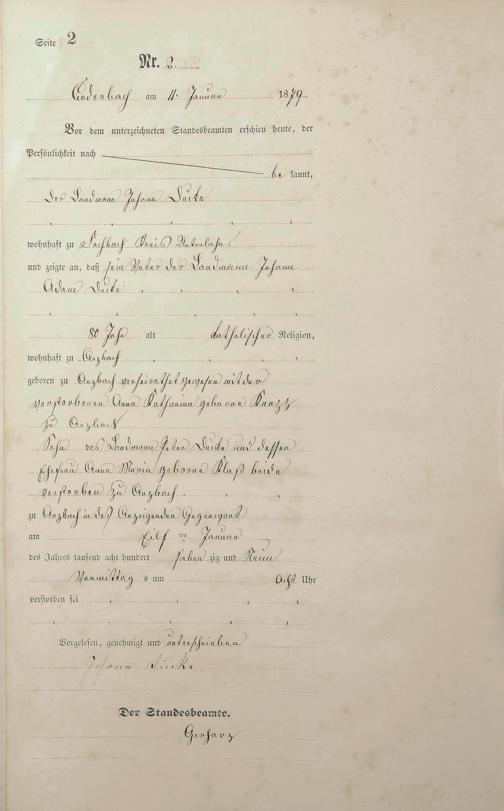 Seite 2
Nr. 2.
am 11. Januar 1879
Vor dem unterzeichneten Standesbeamten erschien heute, der
Persönlichkeit nach
be kannt,
der Landmann Johann
wohnhaft zu Fachbach Kreis Unterlahn
und zeigte an, daß sein Vater der Landmann Johann
Adam
80 Jahr alt katholischer Religion,
wohnhaft zu Arzbach
geboren zu Arzbach verheirathet gewesen mit der
verstorbenen Anna Katharina geborene
zu Arzbach
Sohn des Landmann Peter und dessen
Ehefrau Anna Maria geborene Klaß beide
verstorben zu Arzbach.
zu Arzbach in des Anzeigenden Gegenwart
am Eilf ten Januar
des Jahres tausend acht hundert sieben zig und Neun
Vormittag s um Acht Uhr
verstorben sei
Vorgelesen, genehmigt und unterschrieben
Johann
Der Standesbeamte.
Gerharz